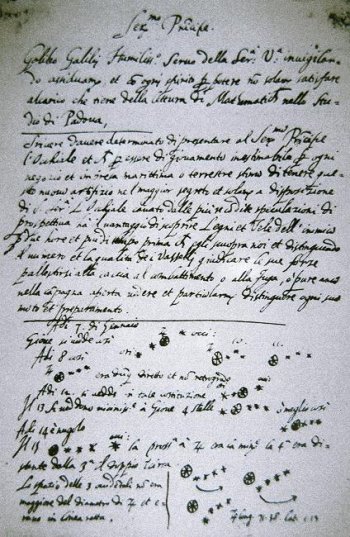 Ser.mo Principe.
Galileo Galilei Humiliss.o Servo della Ser.a V.a invigilan-
do assiduamente, et con ogni spirito per potere non solam. satisfare
al carico che tiene della lettura di Matematiche nello Stu-
dio di Padova,
Scrivere d'avere determinato di presentare al Ser.mo Principe
l'Occhiale et per essere di giovamento inestimabile per ogni
negozio et impresa marittima o terrestre stimo di tenere que-
sto nuovo artifizio nel maggior segreto et solam. a disposizione
di S. Ser.tà L'Occhiale cavato dalle più recondite speculazioni di
prospettiva ha il vantaggio di scoprire Legni et Vele dell'inimico
per due hore et più di tempo prima ch'egli scuopra noi et distinguendo
il numero et la qualità de i Vasselli giudicare le sue forze
pallestirsi alla caccia al combattimento o alla fuga, o pure anco
nella campagna aperta vedere et particolarm. distinguere ogni suo
moto et preparamento.
Adi 7. di Gennaio
Giove si vedde così
Adi 8 così
era dunque diretto et non retrogrado
Adi 12 si vedde in tale costituzione
Il 13 si veddono vicinissime a Giove 4 stelle meglio così
Adi 14 è nugolo
Il 15 la pross.a a era la min.a la 4.a era di-
stante dalla 3.a il doppio
Lo spazio delle 3 occidentali non era
maggiore del diametro di et e-
rano in linea retta.